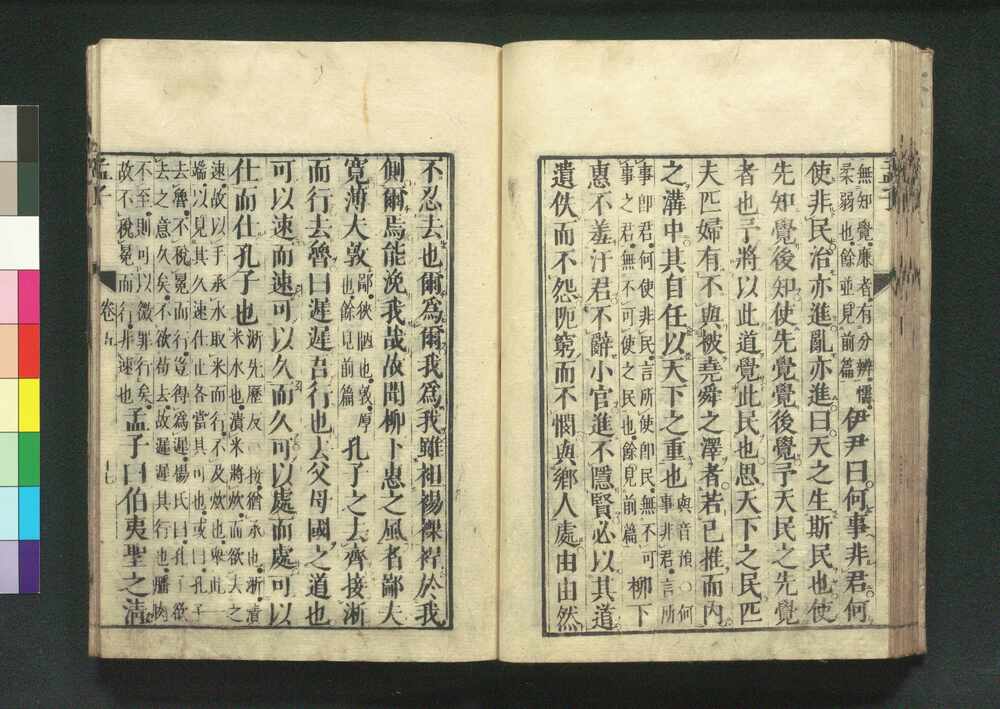 孟子
無知覺廉者有分辨懦
柔弱也餘並見前篇
伊尹曰何事非君何
使非民治亦進亂亦進曰天之生斯民也使
先知覺後知使先覺覺後覺予天民之先覺
者也予將以此道覺此民也思天下之民匹
夫匹婦有不與被堯舜之澤者若己推而內
之溝中其自任以天下之重也
與音預○何
事非君言所
事卽君何使非民言所使卽民無不可
事之君無不可使之民也餘見前篇
柳下
惠不羞汙君不辭小官進不隱賢必以其道
遺佚而不怨阨窮而不憫與鄉人處由由然
不忍去也爾爲爾我爲我雖袒裼裸裎於我
側爾焉能浼我哉故聞柳下惠之風者鄙夫
寬薄夫敦
鄙狹陋也敦厚
也餘見前篇
孔子之去齊接淅
而行去魯曰遲遲吾行也去父母國之道也
可以速而速可以久而久可以處而處可以
仕而仕孔子也
淅先歷反○接猶承也淅漬
米水也漬米將炊而欲去之
速故以手承水取米而行不及炊也舉此一
端以見其久速仕止各當其可也或曰孔子
去魯不稅冕而行豈得爲遲楊氏曰孔子欲
去之意久矣不欲苟去故遲遲其行也膰肉
不至則可以微罪行矣
故不稅冕而行非速也
孟子曰伯夷聖之清
孟子
卷五
十七